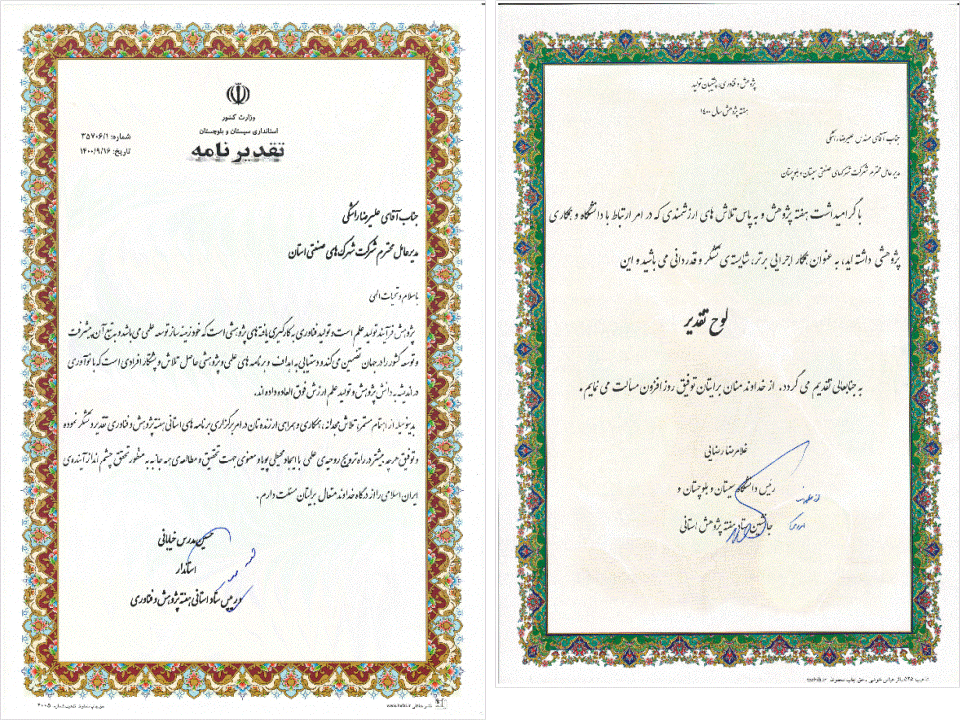 وزارت کشور
استانداری سیستان و بلوچستان
تقدیرنامه
شماره: ۳۵۷۰۶/۱
تاریخ: ۱۴۰۰/۹/۱۶
جناب آقای علیرضا راشکی
مدیرعامل محترم شرکت شهرک های صنعتی استان
باسلام و تحیات الهی
پژوهش فرآیند تولید علم است و تولید فناوری به کارگیری یافته های پژوهشی است که خود زمینه ساز توسعه علمی می باشد و به تبع آن پیشرفت
و توسعه کشور را در جهان تضمین می کند و دستیابی به اهداف و برنامه های علمی و پژوهشی حاصل تلاش و پشتکار افرادی است که با نوآوری
در اندیشه به دانش پژوهش و تولید علم ارزش فوق العاده داده اند.
بدینوسیله از اهتمام مستمر، تلاش مجدانه، همکاری و همراهی ارزنده تان در امر برگزاری برنامه های استانی هفته پژوهش و فناوری تقدیر و تشکر نموده
و توفیق هرچه بیشتر در راه ترویج روحیه ی علمی با ایجاد محیطی پویا و معنوی جهت تحقیق و مطالعه ی همه جانبه به منظور تحقق چشم انداز آینده ی
ایران اسلامی را از درگاه خداوند متعال برایتان مسئلت دارم .
حسین مدرس خیابانی
استاندار
و رییس ستاد استانی هفته پژوهش و فناوری
پژوهش و فناوری، پشتیبان تولید
هفته پژوهش سال ۱۴۰۰
جناب آقای مهندس علیرضا راشکی
مدیرعامل محترم شرکت شهرکهای صنعتی سیستان و بلوچستان
با گرامیداشت هفته پژوهش و به پاس تلاش های ارزشمندی که در امر ارتباط با دانشگاه و همکاری
پژوهشی داشته اید، به عنوان همکار اجرایی برتر، شایسته ی تشکر و قدردانی می باشید و این
لوح تقدیر
به جنابعالی تقدیم می گردد. از خداوند منان برایتان توفیق روز افزون مسالت می نمایم .
غلامرضا رضایی
رئیس دانشگاه سیستان و بلوچستان و
جانشین ستاد هفته پژوهش استانی